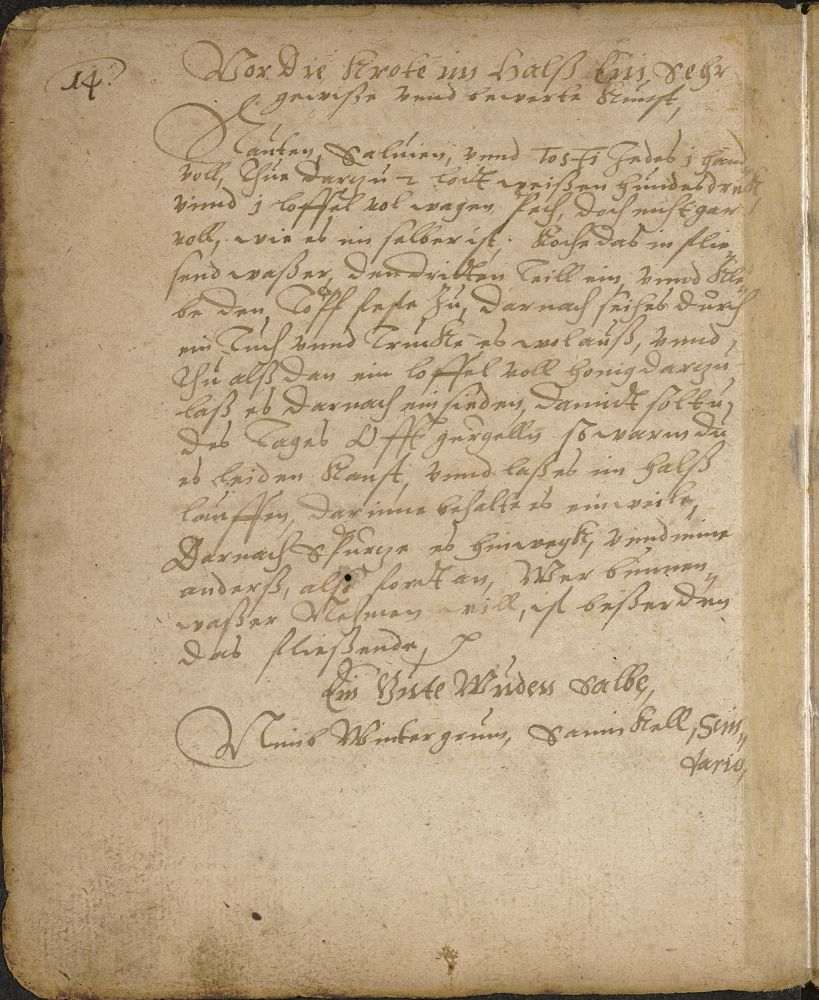 14.
Vor Die Krote im Halß Ein, Sehr
gewiße vnnd bewerte Kunst,
Rauten, Saluien, vnnd Tosti Jedes j Hand
voll, Thue darzu 2 lodt weißen Hundesdreck,
vnnd j loffel vol wagen Pech, doch nicht gar
voll, wie es im selber ist. Koche das in flie,
send waßer, den dritten Teill ein, vnnd Kle,
be den Topff feste Zu, darnach seihes durch
ein Tuch vnnd Trucke es wol auß, vnnd
Thu alßdan ein loffel voll Honig darzu
laß es darnach einsieden, damidt soltu,
des Tages Offt gurgelln so warm du
es leiden Kanst, vnnd laß es im Halß
lauffen, darinne behalte es ein weile,
Darnach Spurze es hinwegk, vnnd nim
anderß, alß fordt an, Wer
waßer Nehmen will, ist beßer den
das fließende,
Ein Gute Wunden Salbe,
Nimb Wintergrun, Sanickell, Sin,